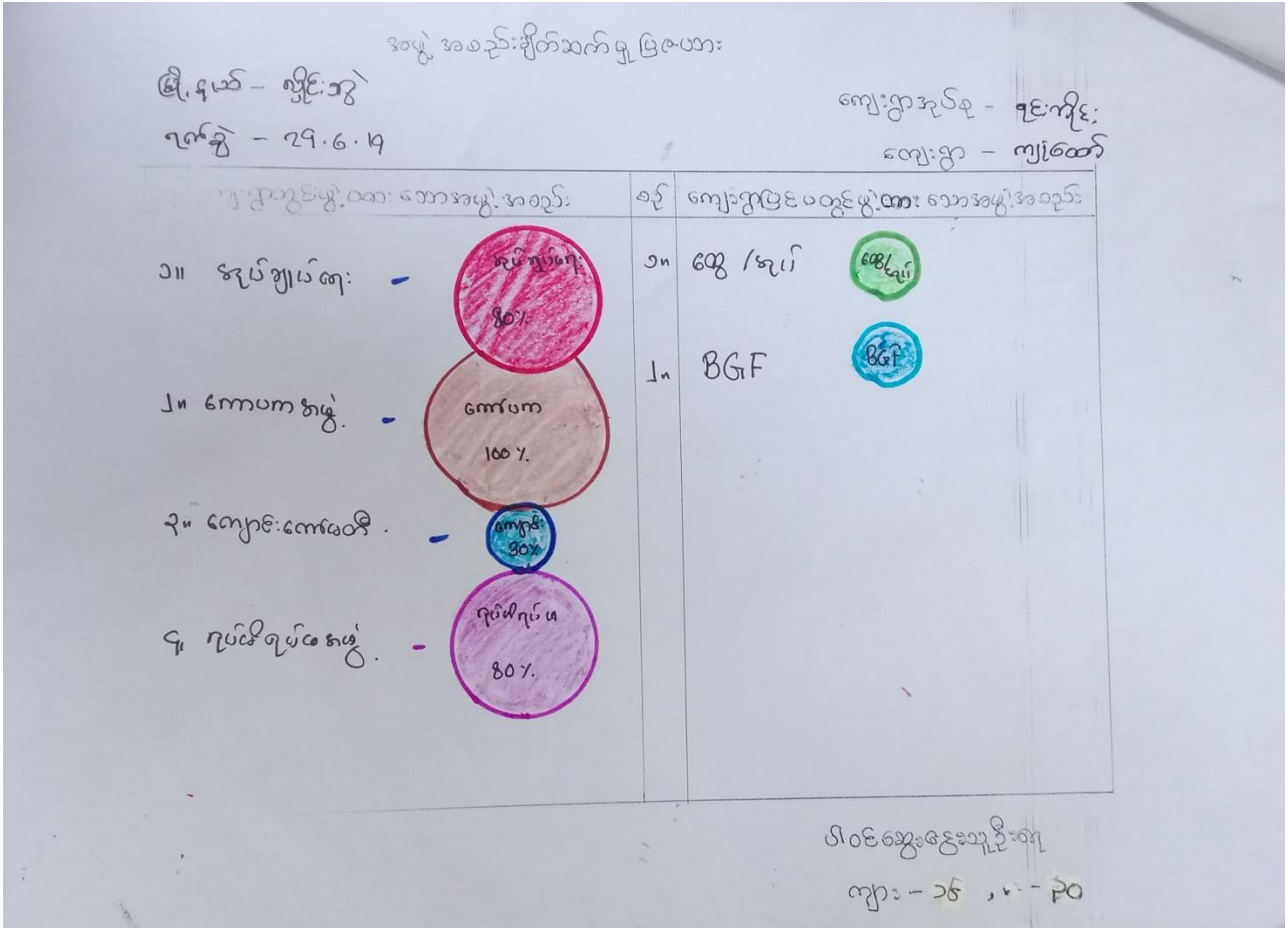 အဖွဲ့အစည်းချိတ်ဆက်မှုပြဇယား
မြို့နယ် - လှိုင်းဘွဲ
ကျေးရွာအုပ်စု -
ရက်စွဲ - 29.6.19
ကျေးရွာ - ကျုံထော်
ကျေးရွာတွင်းဖွဲ့ထားသောအဖွဲ့အစည်း
စဉ်
ကျေးရွာပြင်ပတွင်ဖွဲ့ထားသောအဖွဲ့အစည်း
၁။ အုပ်ချုပ်ရေး -
အုပ်ချုပ်ရေး
80%
၁။ ထွေ/အုပ်
ထွေ/အုပ်
၂။ ကော်မကအဖွဲ့ -
ကော်မက
100%
၂။ BGF
BGF
၃။ ကျောင်းကော်မတီ -
ကျောင်း
30%
၄။ ရပ်မိရပ်ဖအဖွဲ့ -
ရပ်မိရပ်ဖ
80%
ပါဝင်ဆွေးနွေးသူဦးရေ
ကျား - ၁၆ , မ - ၃၀